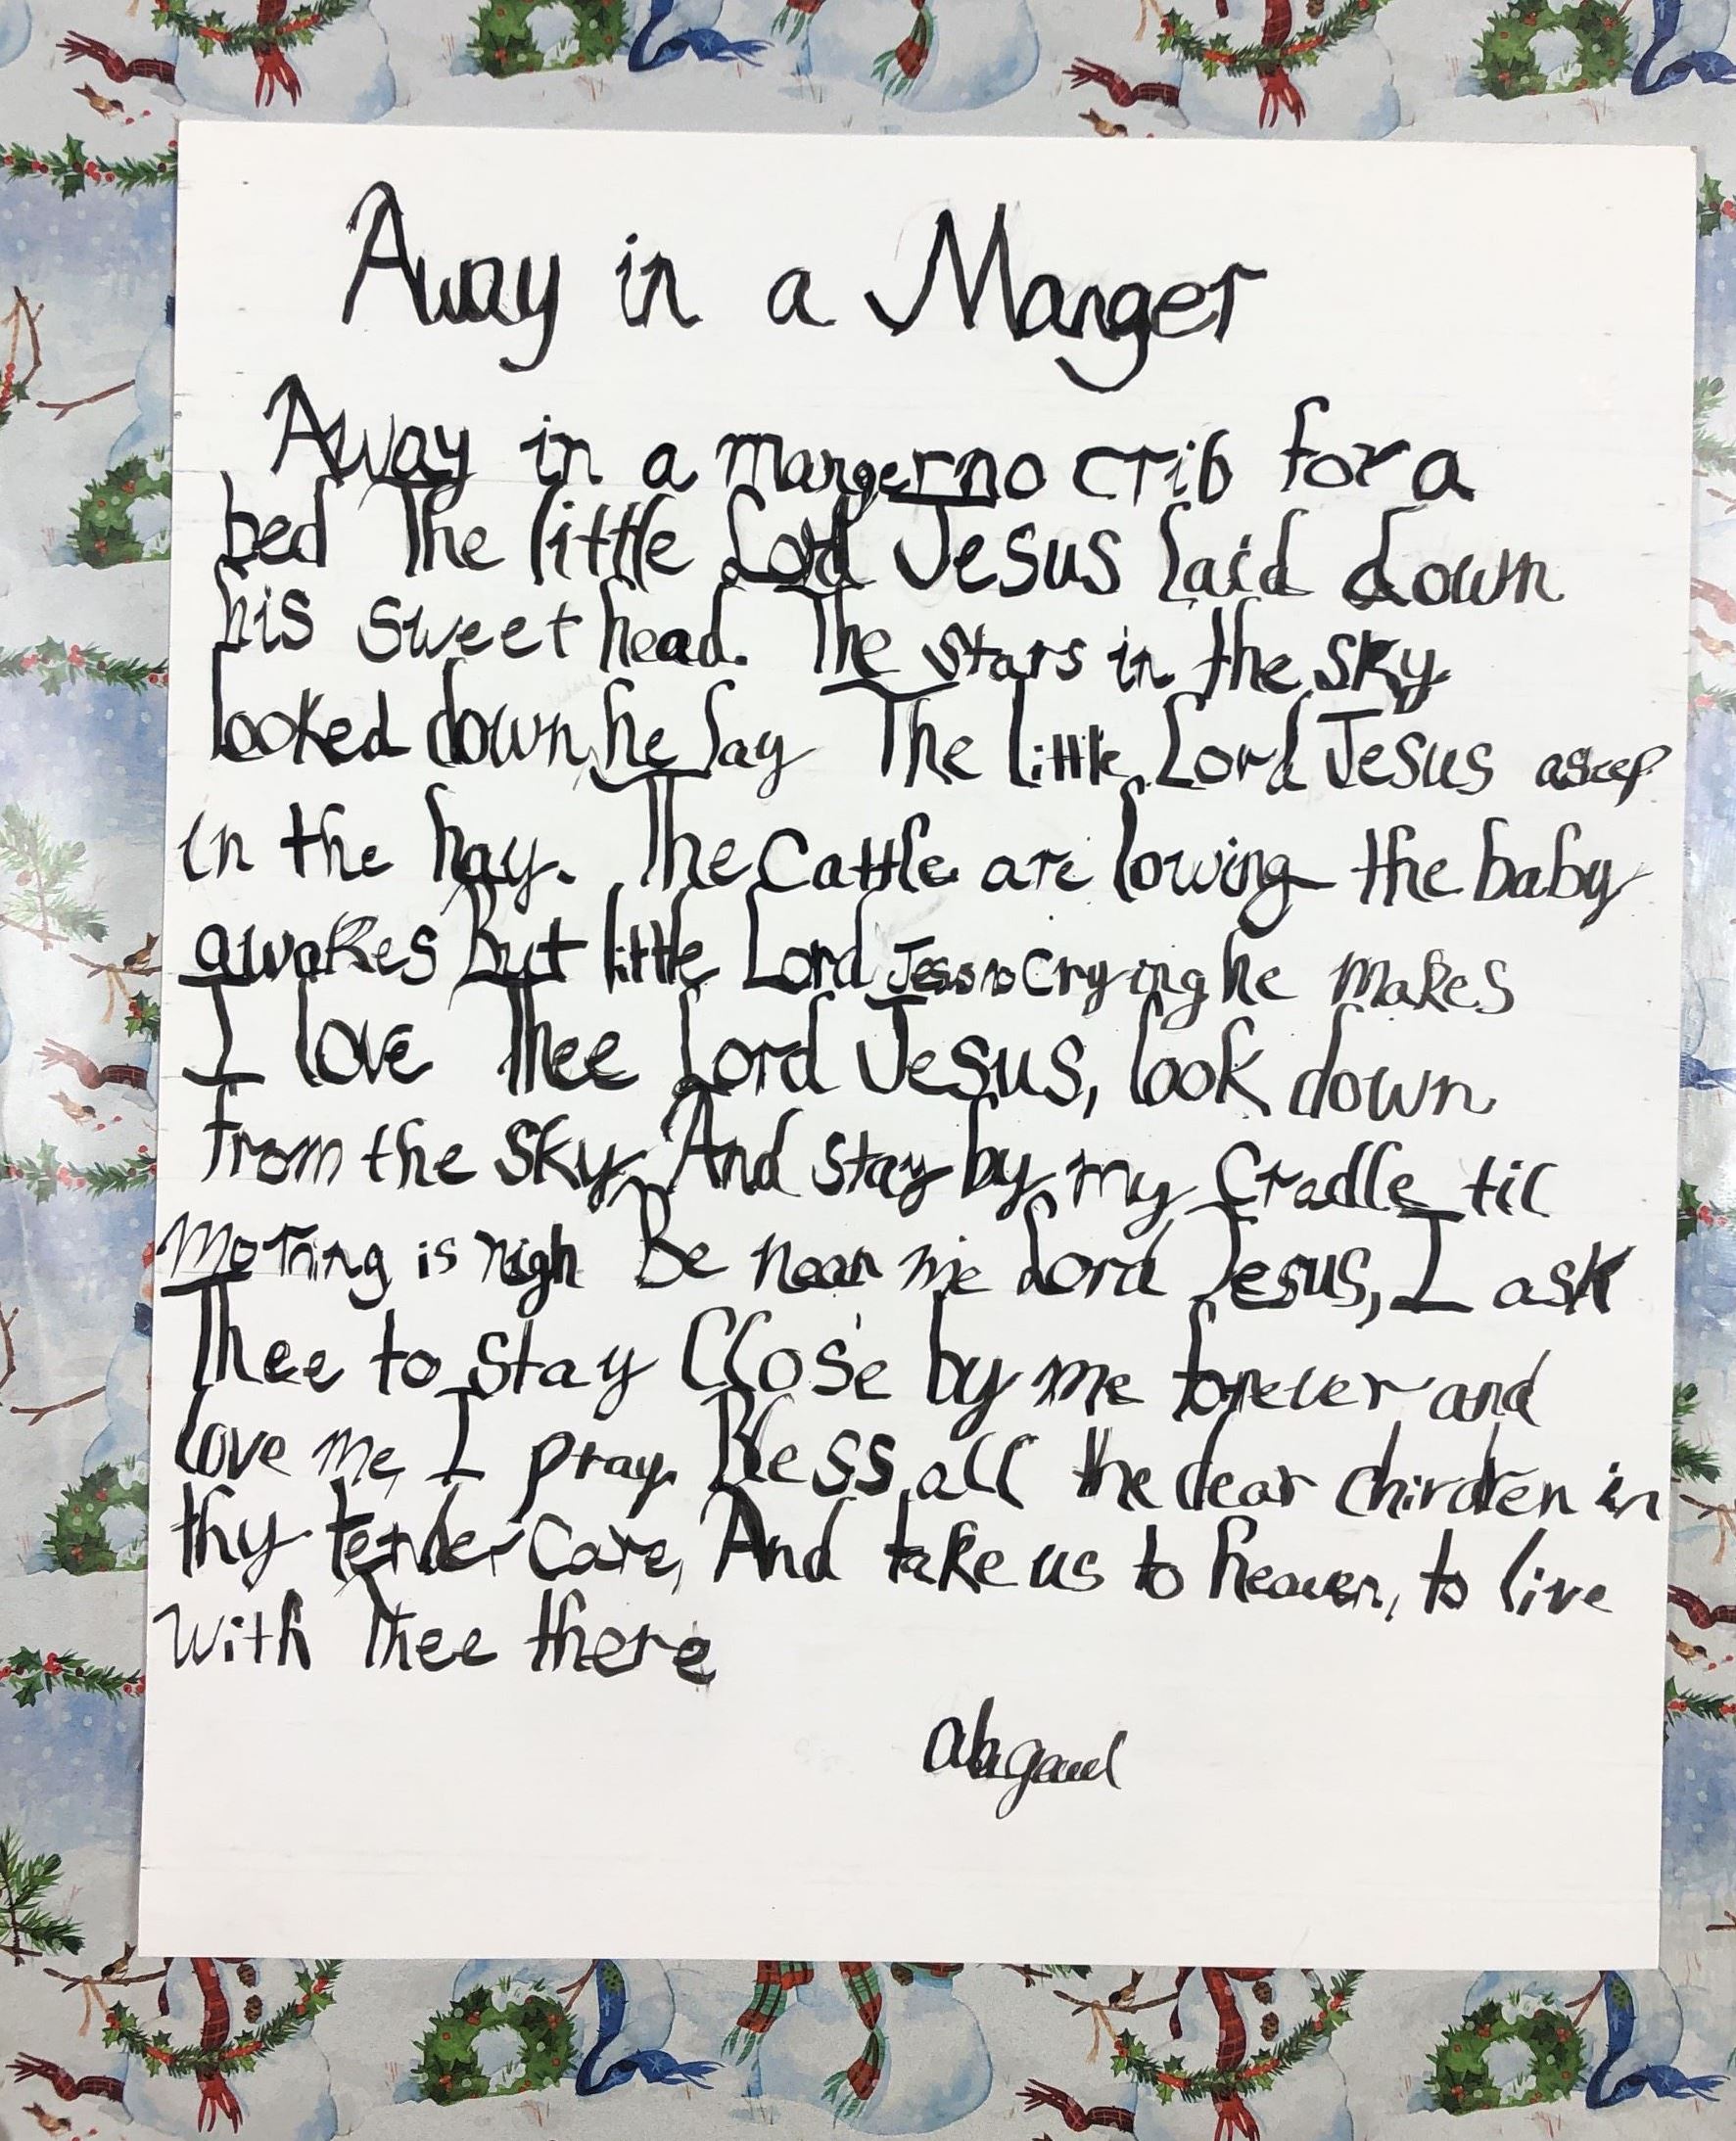 Away in a Manger
Away in a manger no crib for a
bed The little Lord Jesus laid down
his sweet head. The stars in the sky
looked down he lay The little Lord Jesus
in the hay. The Cattle are lowing the baby
awakes But little Lord Jesus no crying he makes
I love Thee Lord Jesus, look down
from the sky, And stay by my Cradle til
Morning is nigh Be near me Lord Jesus, I ask
Thee to stay Close by me forever and
love me, I pray. Bless all the dear chirdren in
thy tender Care, And take us to heaven, to live
with Thee there